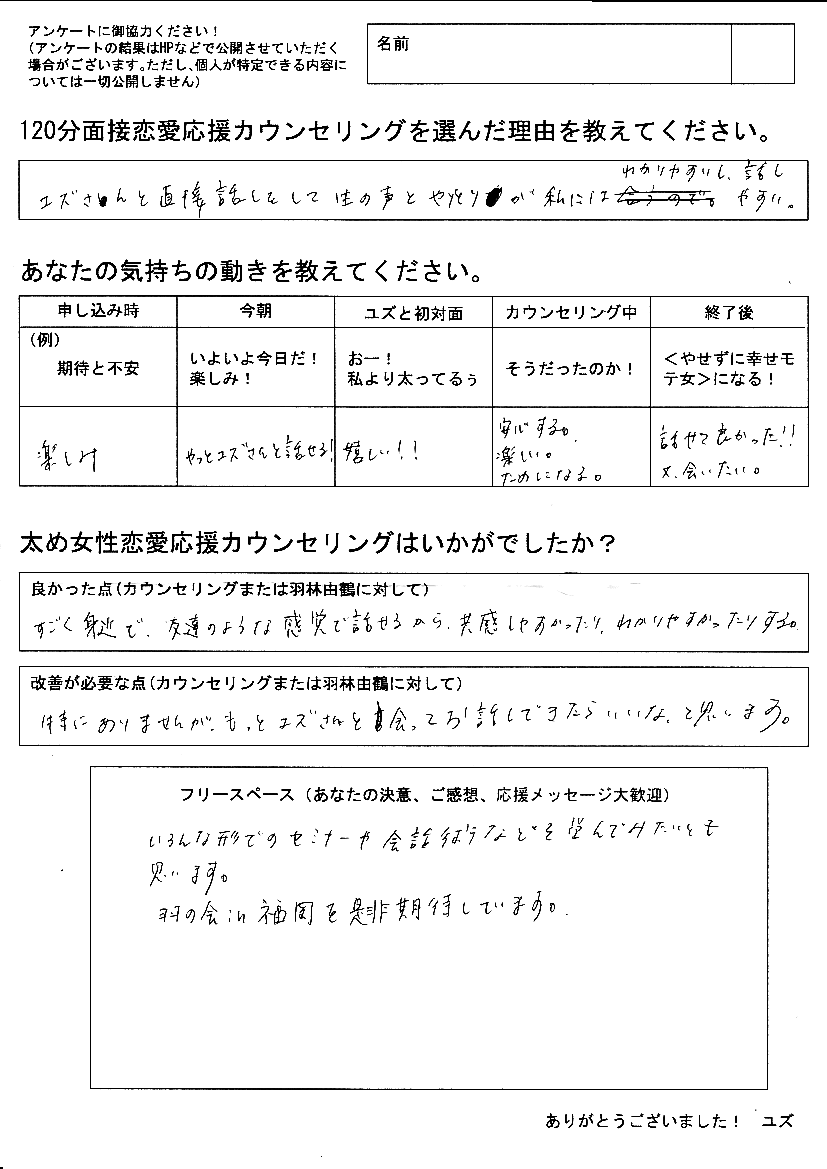 アンケートに御協力ください！
（アンケートの結果はHPなどで公開させていただく
場合がございます。ただし、個人が特定できる内容に
ついては一切公開しません）
名前
120分面接恋愛応援カウンセリングを選んだ理由を教えてください。
わかりやすいし、話し
ユズさんと直接話しをして生の声とやりとりが私には合うので。やすい。
あなたの気持ちの動きを教えてください。
申し込み時 今朝 ユズと初対面 カウンセリング中 終了後
（例）
期待と不安
いよいよ今日だ！
楽しみ！
おー！
私より太ってるぅ
そうだったのか！
＜やせずに幸せモ
テ女＞になる！
楽しみ
やっとユズさんと話せる！
嬉しい！！
安心する。
楽しい。
ためになる。
話せて良かった！！
又、会いたい。
太め女性恋愛応援カウンセリングはいかがでしたか？
良かった点（カウンセリングまたは羽林由鶴に対して）
すごく身近で、友達のような感覚で話せるから、共感しやすかったり、わかりやすかったりする。
改善が必要な点（カウンセリングまたは羽林由鶴に対して）
特にありませんが、もっとユズさんと会ってお話しできたらいいな、と思います。
フリースペース（あなたの決意、ご感想、応援メッセージ大歓迎）
いろんな形でのセミナーや会話 などを みたいとも
思います。
羽の会in福岡を是非期待しています。
ありがとうございました！ ユズ